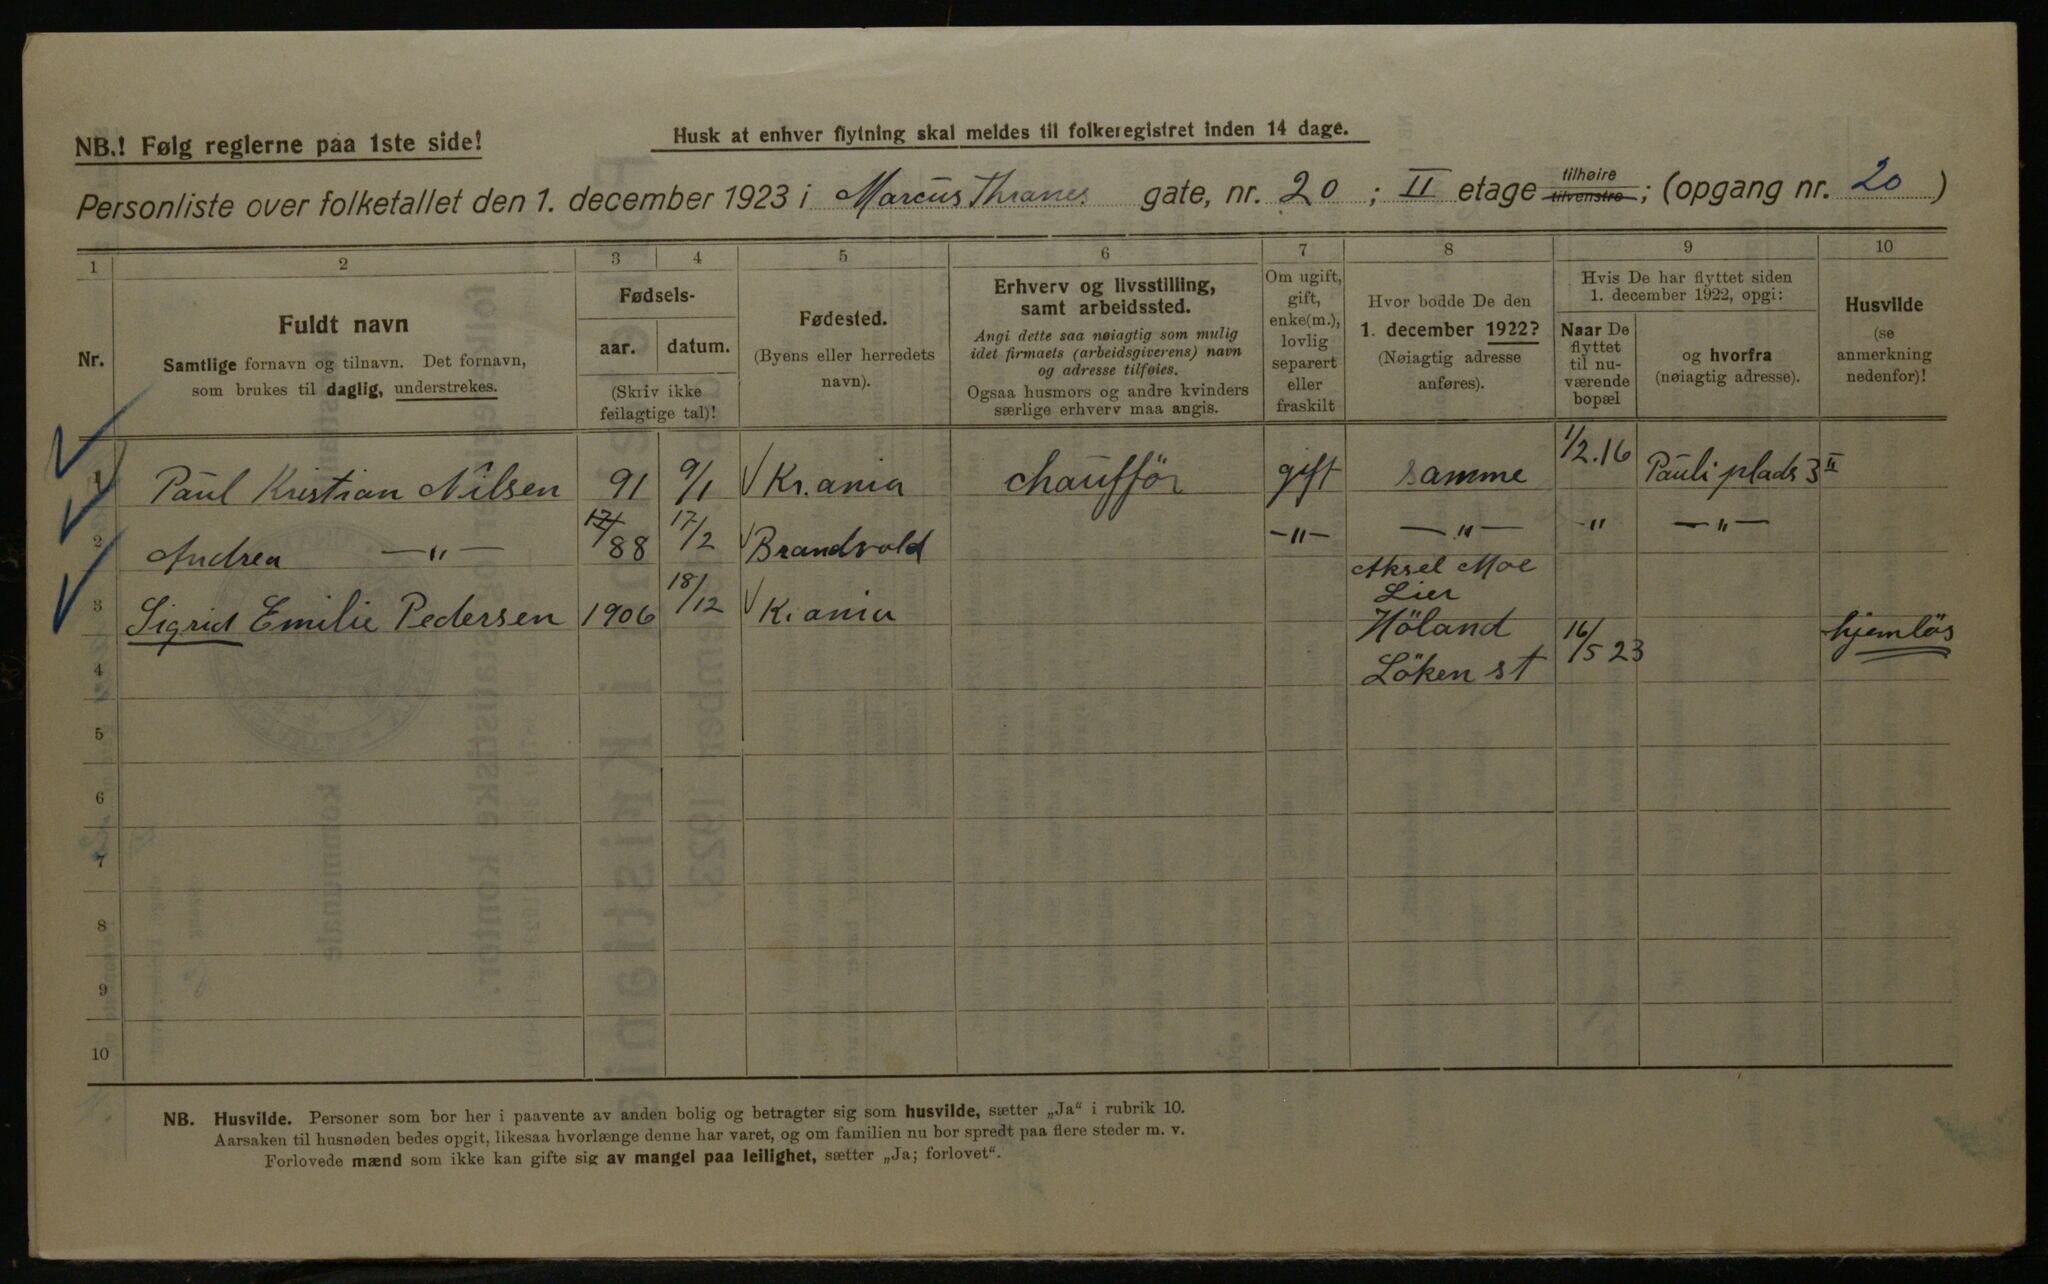 NB.! Følg reglerne paa 1ste side!
Husk at enhver flytning skal meldes til folkeregistret inden 14 dage.
Personliste over folketallet den 1. december 1923 i Marcus Thranes gate, nr. 20 ; II etage tilhøire tilvenstre ; (opgang nr. 20 )
1 2 3 4 5 6 7 8 9 10
Nr.
Fuldt navn
Samtlige fornavn og tilnavn. Det fornavn,
som brukes til daglig, understrekes.
Fødsels-
aar. datum.
(Skriv ikke
feilagtige tal)!
Fødested.
(Byens eller herredets
navn).
Erhverv og livsstilling,
samt arbeidssted.
Angi dette saa nøiagtig som mulig
idet firmaets (arbeidsgiverens) navn
og adresse tilføies.
Ogsaa husmors og andre kvinders
særlige erhverv maa angis.
Om ugift,
gift,
enke(m.),
lovlig
separert
eller
fraskilt
Hvor bodde De den
1. december 1922?
(Nøiagtig adresse
anføres).
Hvis De har flyttet siden
1. december 1922, opgi:
Naar De
flyttet
til nu-
værende
bopæl
og hvorfra
(nøiagtig adresse).
Husvilde
(se
anmerkning
nedenfor)!
1 Paul Kristian Nilsen 91 9/1 Kr.ania chaufför gift samme 1/2.16 Pauli plads 3 II
2 Andrea —„— 17/ 88 17/2 Brandvold —„— —„— „ —„—
3 Sigrid Emilie Pedersen 1906 18/12 K.ania Aksel Moe
Lier
Höland 16/5 23 hjemlös
4 Löken st
5
6
7
8
9
10
NB. Husvilde. Personer som bor her i paavente av anden bolig og betragter sig som husvilde, sætter „Ja“ i rubrik 10.
Aarsaken til husnøden bedes opgit, likesaa hvorlænge denne har varet, og om familien nu bor spredt paa flere steder m. v.
Forlovede mænd som ikke kan gifte sig av mangel paa leilighet, sætter „Ja; forlovet“.